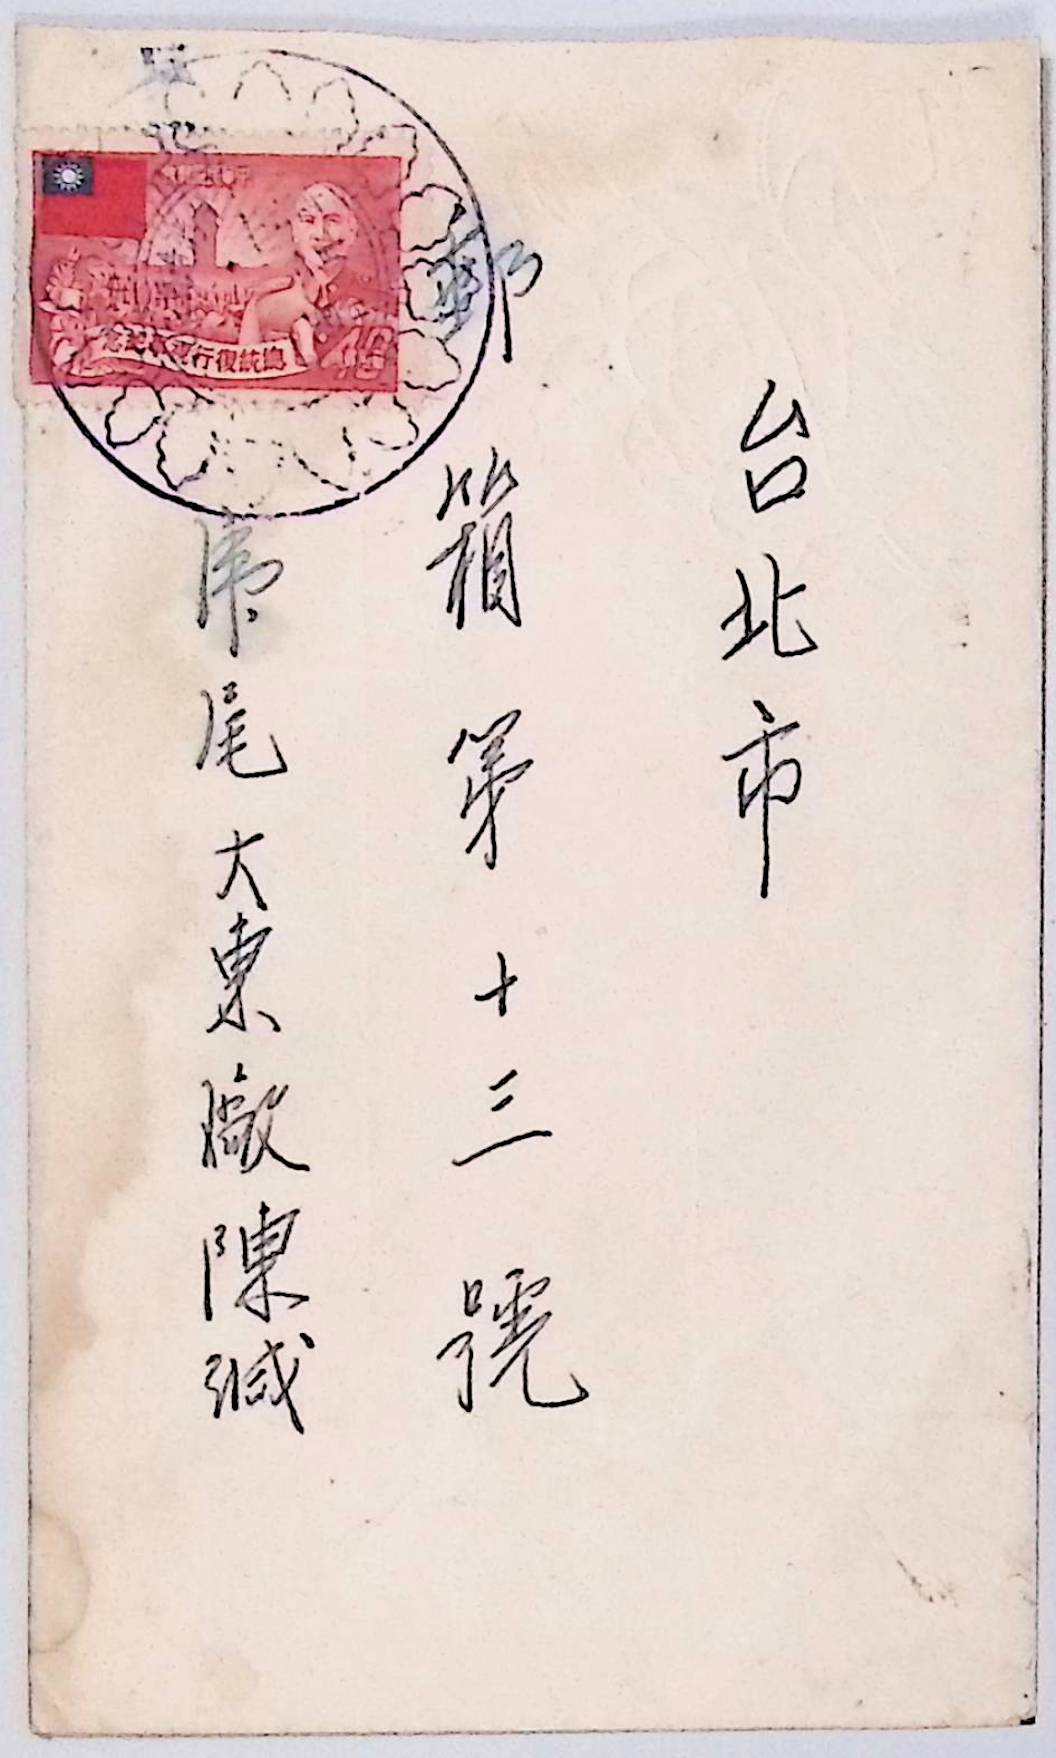 台北市
郵箱第十三號
虎尾大東廠陳緘
總統復行視事紀念